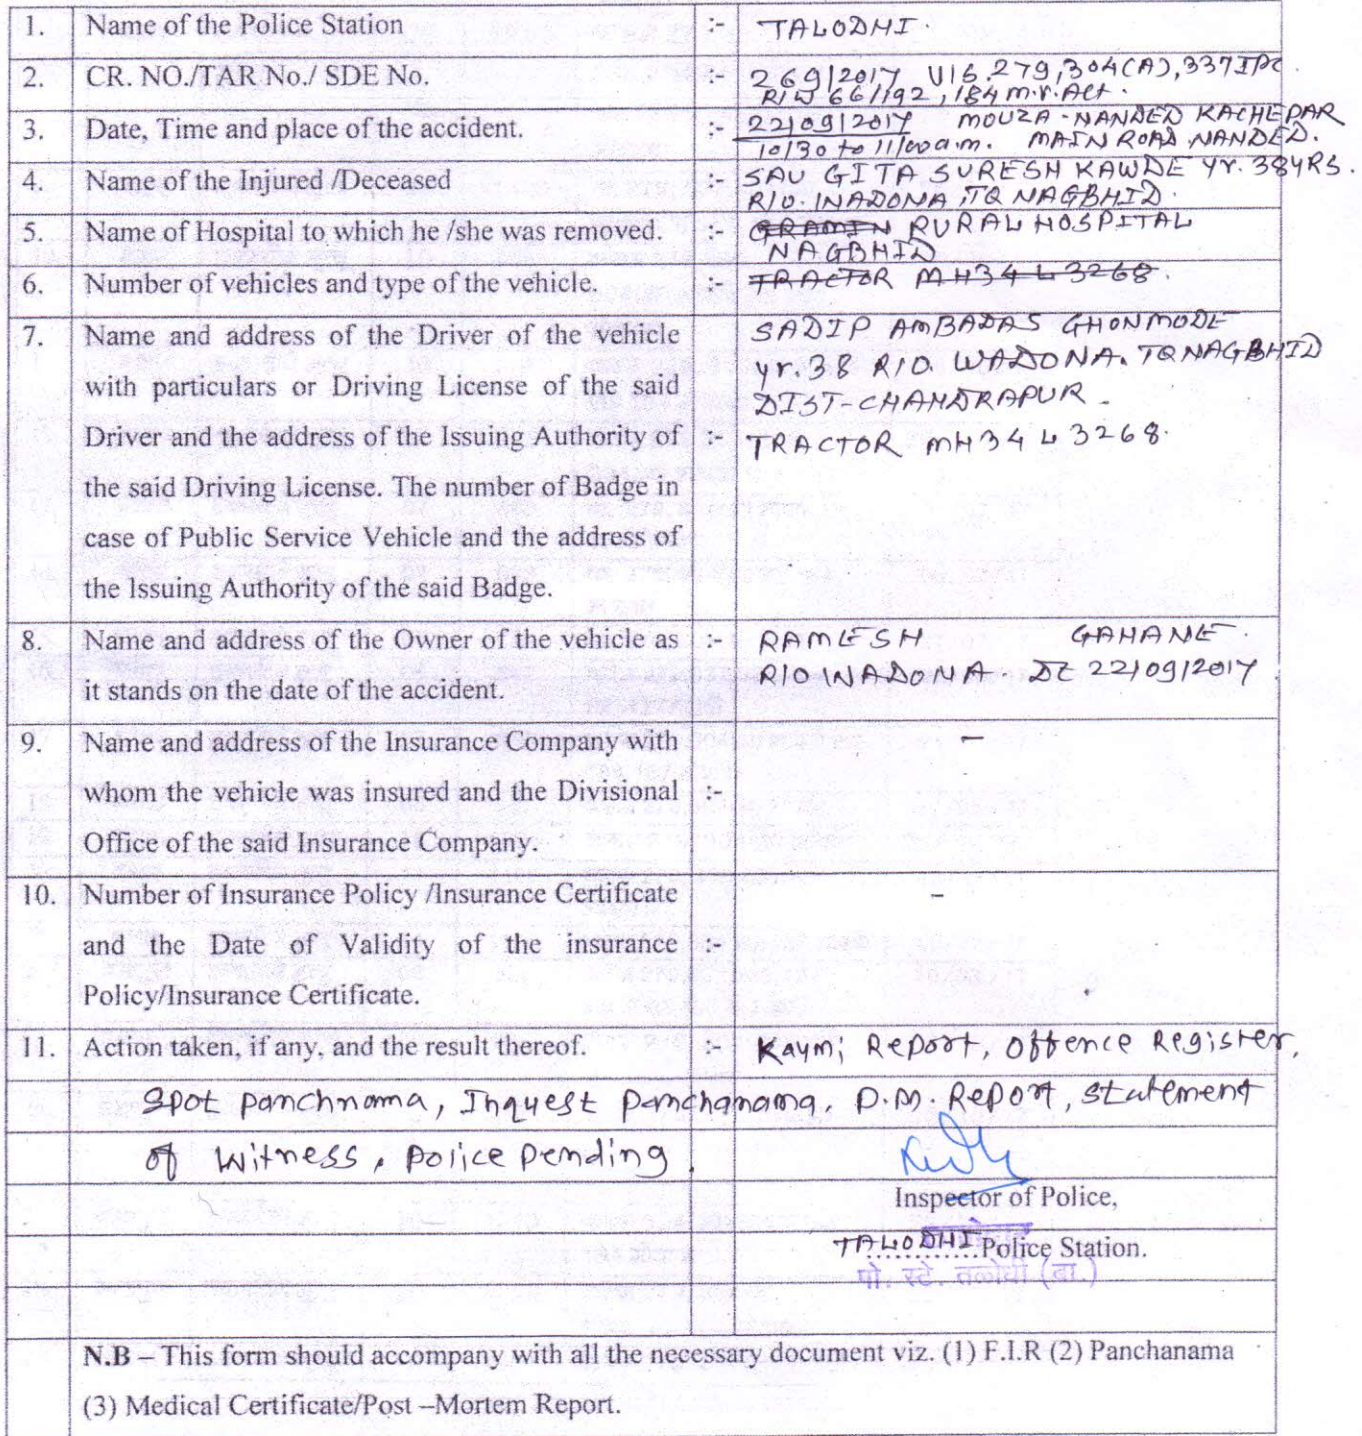 1. Name of the Police Station :- TALODHI.
2. CR. NO./TAR No./ SDE No. :- 269/2017 U/S. 279, 304(A), 337 IPC
R/W 66/192, 184 m.v. Act.
3. Date, Time and place of the accident. :- 22/09/2017 MOUZA - NANDED KACHEPAR
10/30 to 11/00 a.m. MAIN ROAD NANDED.
4. Name of the Injured /Deceased :- SAU GITA SURESH KAWDE yr. 38 YRS.
R/O. WADONA, TQ NAGBHID.
5. Name of Hospital to which he /she was removed. :- GRAMIN RURAL HOSPITAL
NAGBHID
6. Number of vehicles and type of the vehicle. :- TRACTOR MH34 L 3268.
7. Name and address of the Driver of the vehicle SADIP AMBADAS GHONMODE
with particulars or Driving License of the said yr. 38 R/O. WADONA. TQ NAGBHID
DIST-CHANDRAPUR -
Driver and the address of the Issuing Authority of :- TRACTOR MH34 L 3268.
the said Driving License. The number of Badge in
case of Public Service Vehicle and the address of
the Issuing Authority of the said Badge.
8. Name and address of the Owner of the vehicle as :- RAMESH GAHANE.
it stands on the date of the accident. R/O WADONA. Dt 22/09/2017
9. Name and address of the Insurance Company with -
whom the vehicle was insured and the Divisional :-
Office of the said Insurance Company.
10. Number of Insurance Policy /Insurance Certificate -
and the Date of Validity of the insurance :-
Policy/Insurance Certificate.
11. Action taken, if any, and the result thereof. :- Kaymi Report, Offence Register,
Spot panchnama, Inquest panchanama, P.M. Report, Statement
of Witness, police pending.
Inspector of Police,
TALODHI Police Station.
पो. स्टे. तळोधी (बा.)
N.B – This form should accompany with all the necessary document viz. (1) F.I.R (2) Panchanama
(3) Medical Certificate/Post –Mortem Report.